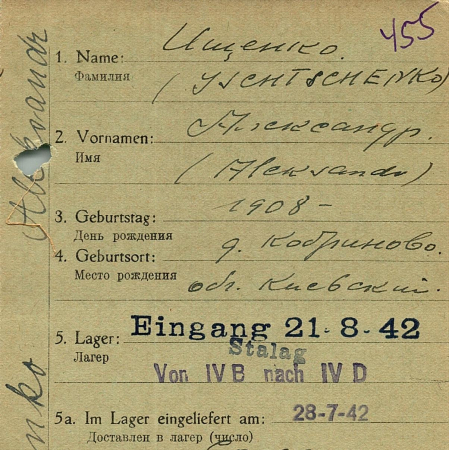 455
1. Name: Ищенко.
Фамилия (ISCHTSCHENKO)
2. Vornamen: Александр.
Имя (Aleksandr)
3. Geburtstag: 1908 -
День рождения
4. Geburtsort: д. Кобриново.
Место рождения обл. Киевский.
5. Lager: Eingang 21-8-42
Лагер Stalag
Von IV B nach IV D
5a. Im Lager eingeliefert am: 28-7-42
Доставлен в лагер (число)
Aleksandr
nko